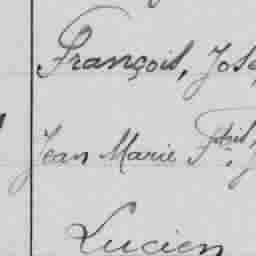 François, Jose
Jean Marie F
Lucien